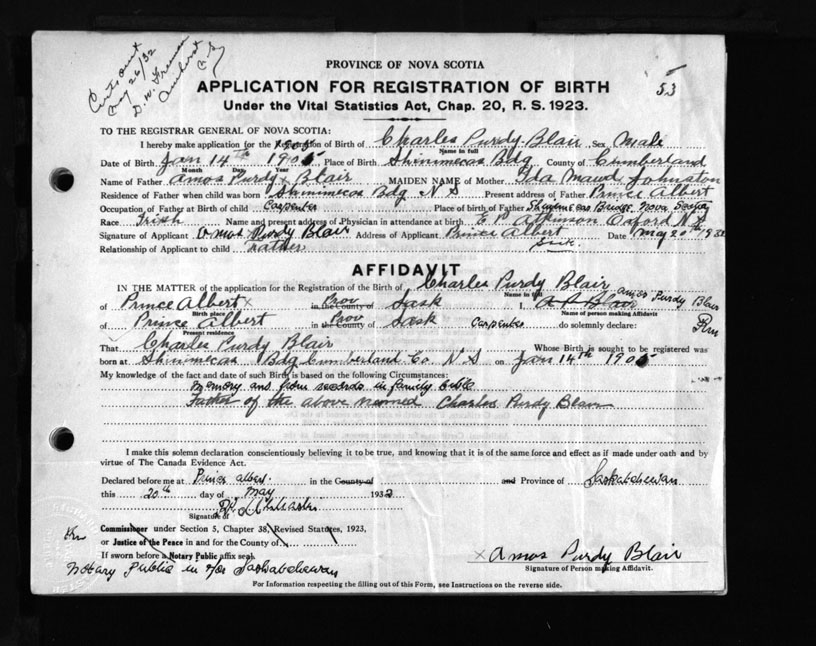 May 26/32
Amherst
53
PROVINCE OF NOVA SCOTIA
APPLICATION FOR REGISTRATION OF BIRTH
Under the Vital Statistics Act, Chap. 20, R. S. 1923.
TO THE REGISTRAR GENERAL OF NOVA SCOTIA:
I hereby make application for the Registration of Birth of Charles Purdy Blair Sex Male
Name in full
Date of Birth Jan 14th 1905 Place of Birth Shinimecas Bdg County of Cumberland
Month Day Year
Name of Father Amos Purdy Blair MAIDEN NAME of Mother Ida Maud Johnston
Residence of Father when child was born Shinimecas Bdg N S Present address of Father Prince Albert
Occupation of Father at Birth of child Carpenter Place of birth of Father Shinimecas Bridge Nova Scotia
Race Irish Name and present address of Physician in attendance at birth E P Atkinson Oxford N S
Signature of Applicant Amos Purdy Blair Address of Applicant Prince Albert Date May 20th 1932
Relationship of Applicant to child Father
AFFIDAVIT
IN THE MATTER of the application for the Registration of the Birth of Charles Purdy Blair
Name in full
of Prince Albert in the County of Prov Sask I, A P Blair Amos Purdy Blair
Birth place Name of person making Affidavit
of Prince Albert in the County of Prov Sask Carpenter do solemnly declare:
Present residence
That Charles Purdy Blair Whose Birth is sought to be registered was
born at Shinimecas Bdg Cumberland Co N S on Jan 14th 1905
My knowledge of the fact and date of such Birth is based on the following Circumstances:
Memory and from records in family bible
Father of the above named Charles Purdy Blair
I make this solemn declaration conscientiously believing it to be true, and knowing that it is of the same force and effect as if made under oath and by
virtue of The Canada Evidence Act.
Declared before me at Prince Albert in the County of and Province of Saskatchewan
this 20th day of May 1932
Signature of
Commissioner under Section 5, Chapter 38, Revised Statutes, 1923,
or Justice of the Peace in and for the County of
If sworn before a Notary Public affix seal.
Notary Public in & for Saskatchewan
Amos Purdy Blair
Signature of Person making Affidavit.
For Information respecting the filling out of this Form, see Instructions on the reverse side.